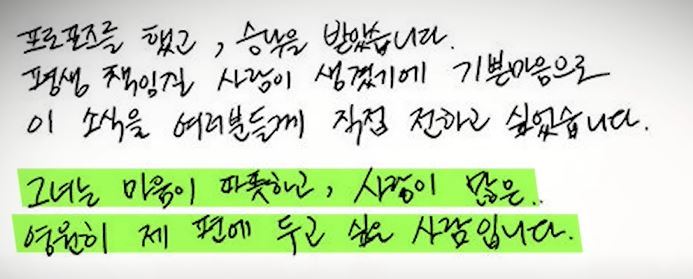 프로포즈를 했고, 승낙을 받았습니다.
평생 책임질 사람이 생겼기에 기쁜마음으로
이 소식을 여러분들께 직접 전하고 싶었습니다.
그녀는 마음이 따뜻하고, 사랑이 많은..
영원히 제 편에 두고 싶은 사람입니다.